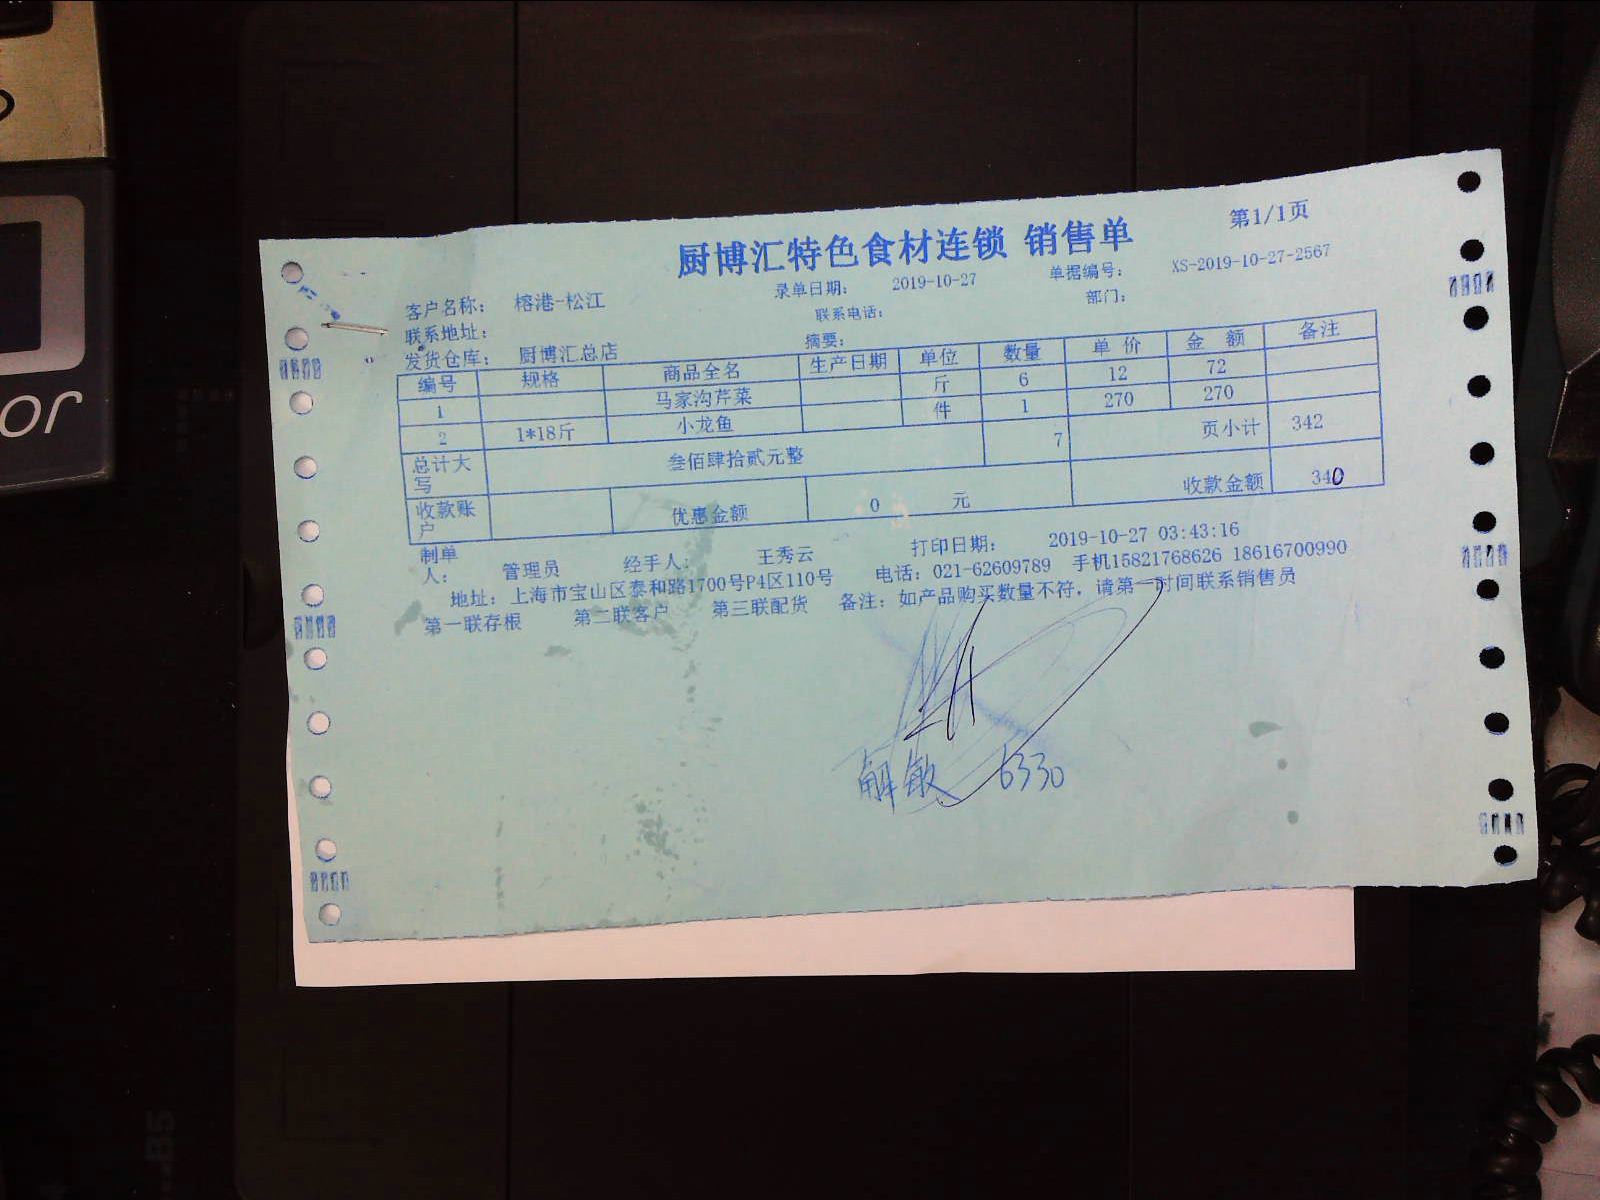 厨博汇特色食材连锁 销售单
第1/1页
客户名称: 榕港-松江 录单日期: 2019-10-27 单据编号: XS-2019-10-27-2567
联系地址: 联系电话: 部门:
发货仓库: 厨博汇总店 摘要:
编号 规格 商品全名 生产日期 单位 数量 单 价 金 额 备注
1 马家沟芹菜 斤 6 12 72
2 1*18斤 小龙鱼 件 1 270 270
总计大写 叁佰肆拾贰元整 7 页小计 342
收款账户 优惠金额 0 元 收款金额 340
制单人: 管理员 经手人: 王秀云 打印日期: 2019-10-27 03:43:16
地址: 上海市宝山区泰和路1700号P4区110号 电话: 021-62609789 手机15821768626 18616700990
第一联存根 第二联客户 第三联配货 备注: 如产品购买数量不符, 请第一时间联系销售员
解敏 6330
or
B5